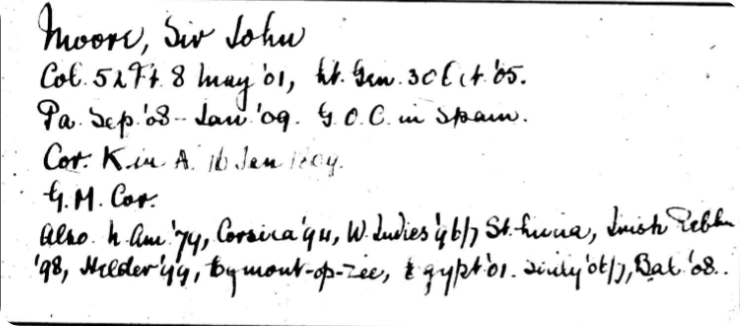 Moore, Sir John
Col. 52 Ft. 8 May '01, Lt. Gen. 30 Oct. '05.
Pa. Sep. '08 - Jan '09. G.O.C. in Spain.
Cor. K. in A. 16 Jan 1809.
G.M. Cor.
Also. N. Am. '79, Corsica '94, W. Indies '96/7 St. Lucia, Irish Rebln
'98, Helder '99, Egmont-op-Zee, Egypt '01. Sicily '06/7, Bal. '08.